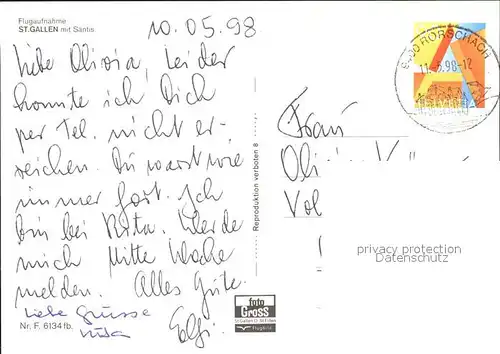 Flugaufnahme
ST.GALLEN mit Säntis
10.05.98
Liebe Olivia, Leider
konnte ich Dich
per Tel. nicht er-
reichen. Du warst wie
immer fort. Ich
bin bei Rita. Werde
mich Mitte Woche
melden. Alles Gute.
Elgi.
Liebe Grüsse
Rita
Nr. F. 6134 fb.
Reproduktion verboten 8
foto
Gross
St.Gallen
Flugfoto
RORSCHACH
11.5.98-12
A
Frau
Vol
privacy protection
Datenschutz